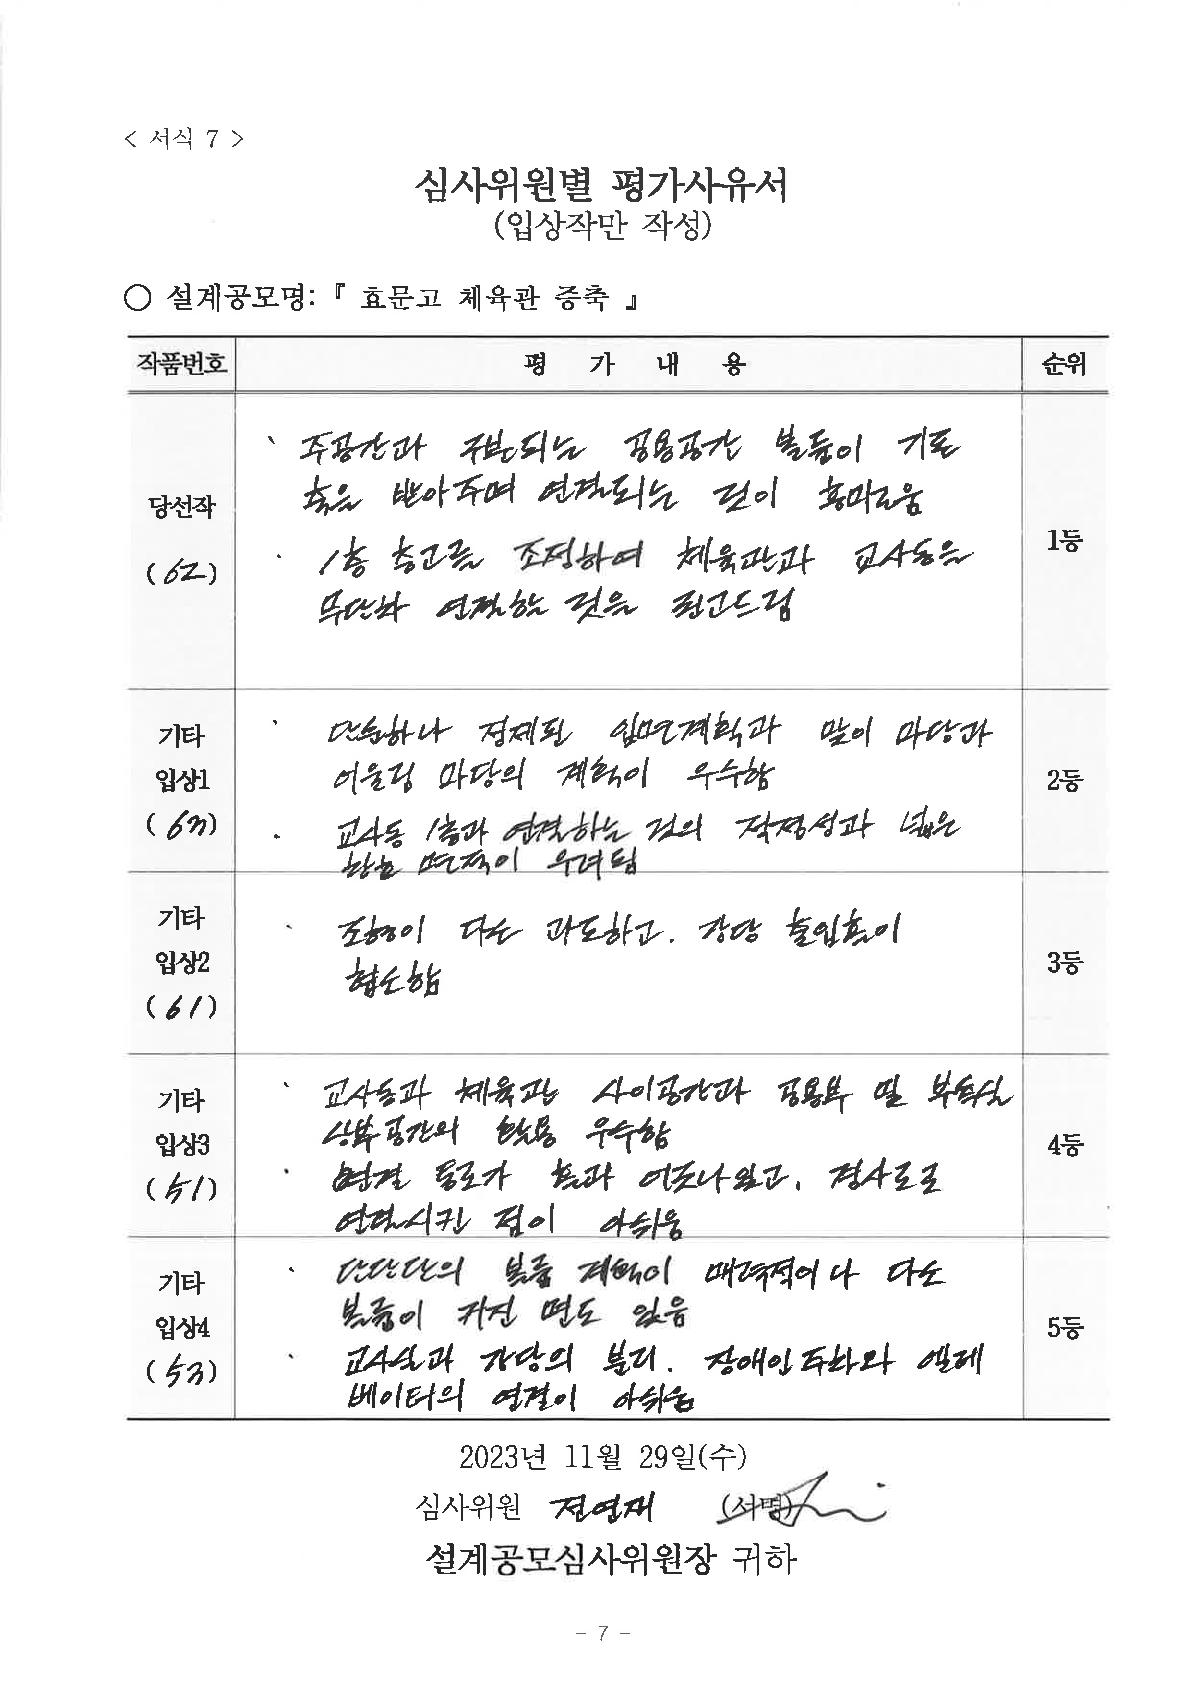 < 서식 7 >
심사위원별 평가사유서
(입상작만 작성)
○ 설계공모명: 『 효문고 체육관 증축 』
작품번호 평 가 내 용 순위
당선작
(62)
` 주공간과 구분되는 공용공간 볼륨이 기존
축을 받아주며 연결되는 것이 흥미로움
· 1층 층고를 조정하여 체육관과 교사동을
무단차 연결하는 것을 권고드림
1등
기타
입상1
(63)
` 단순하나 정제된 입면계획과 맞이 마당과
어울림 마당의 계획이 우수함
· 교사동 1층과 연결하는 것의 적정성과 넓은
창호 면적이 우려됨
2등
기타
입상2
(61)
` 조형이 다소 과도하고, 강당 출입홀이
협소함
3등
기타
입상3
(51)
` 교사동과 체육관 사이공간과 공용부 및 부속실
상부공간의 활용 우수함
· 연결 통로가 홀과 어긋나있고, 경사로로
연결시킨 점이 아쉬움
4등
기타
입상4
(53)
· 단단단의 볼륨 계획이 매력적이나 다소
볼륨이 커진 면도 있음
· 교사실과 강당의 분리, 장애인주차와 엘레
베이터의 연결이 아쉬움
5등
2023년 11월 29일(수)
심사위원 전연재 (서명)
설계공모심사위원장 귀하
- 7 -